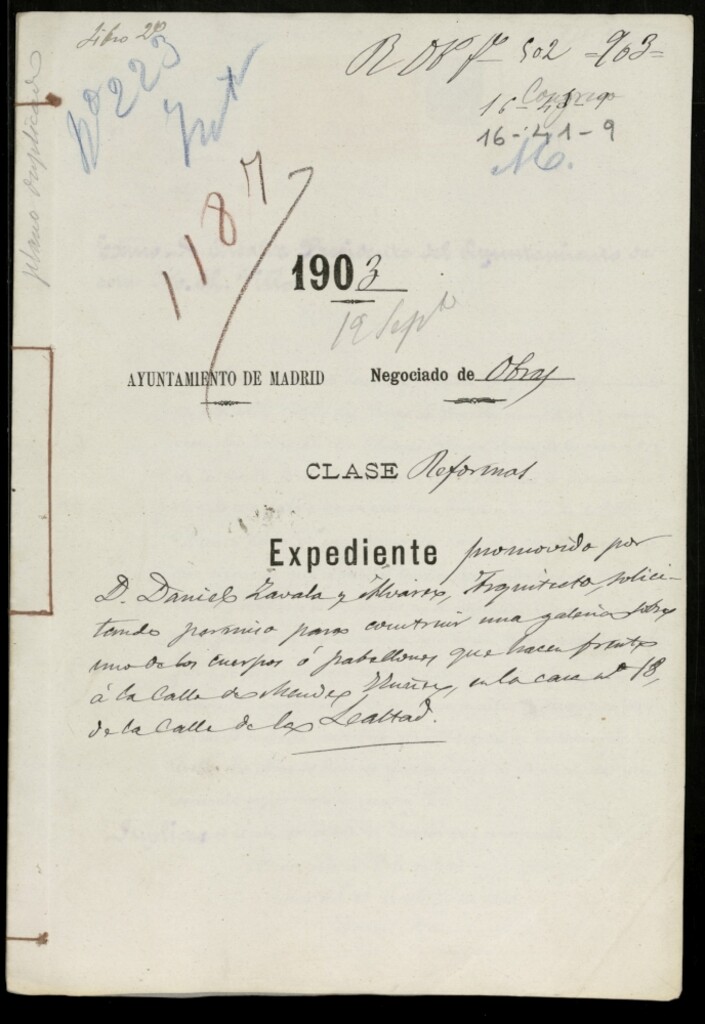 Libro 2º
Nº 223
502 = 963 =
16-41-9
M.
plano duplicado
1187
1903
12 Septe
AYUNTAMIENTO DE MADRID Negociado de Obras
CLASE Reformas.
Expediente promovido por
D. Daniel Zavala y Alvarez, Arquitecto, solici-
tando permiso para construir una galeria sobre
uno de los cuerpos ó pabellones que hacen frente
á la Calle de Mendez Nuñez, en la casa nº 18,
de la Calle de la Lealtad.